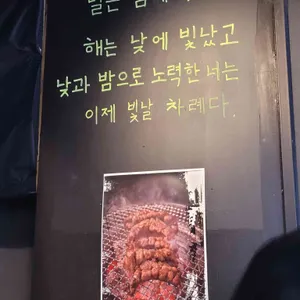 해는 낮에 빛났고
낮과 밤으로 노력한 너는
이제 빛날 차례다.